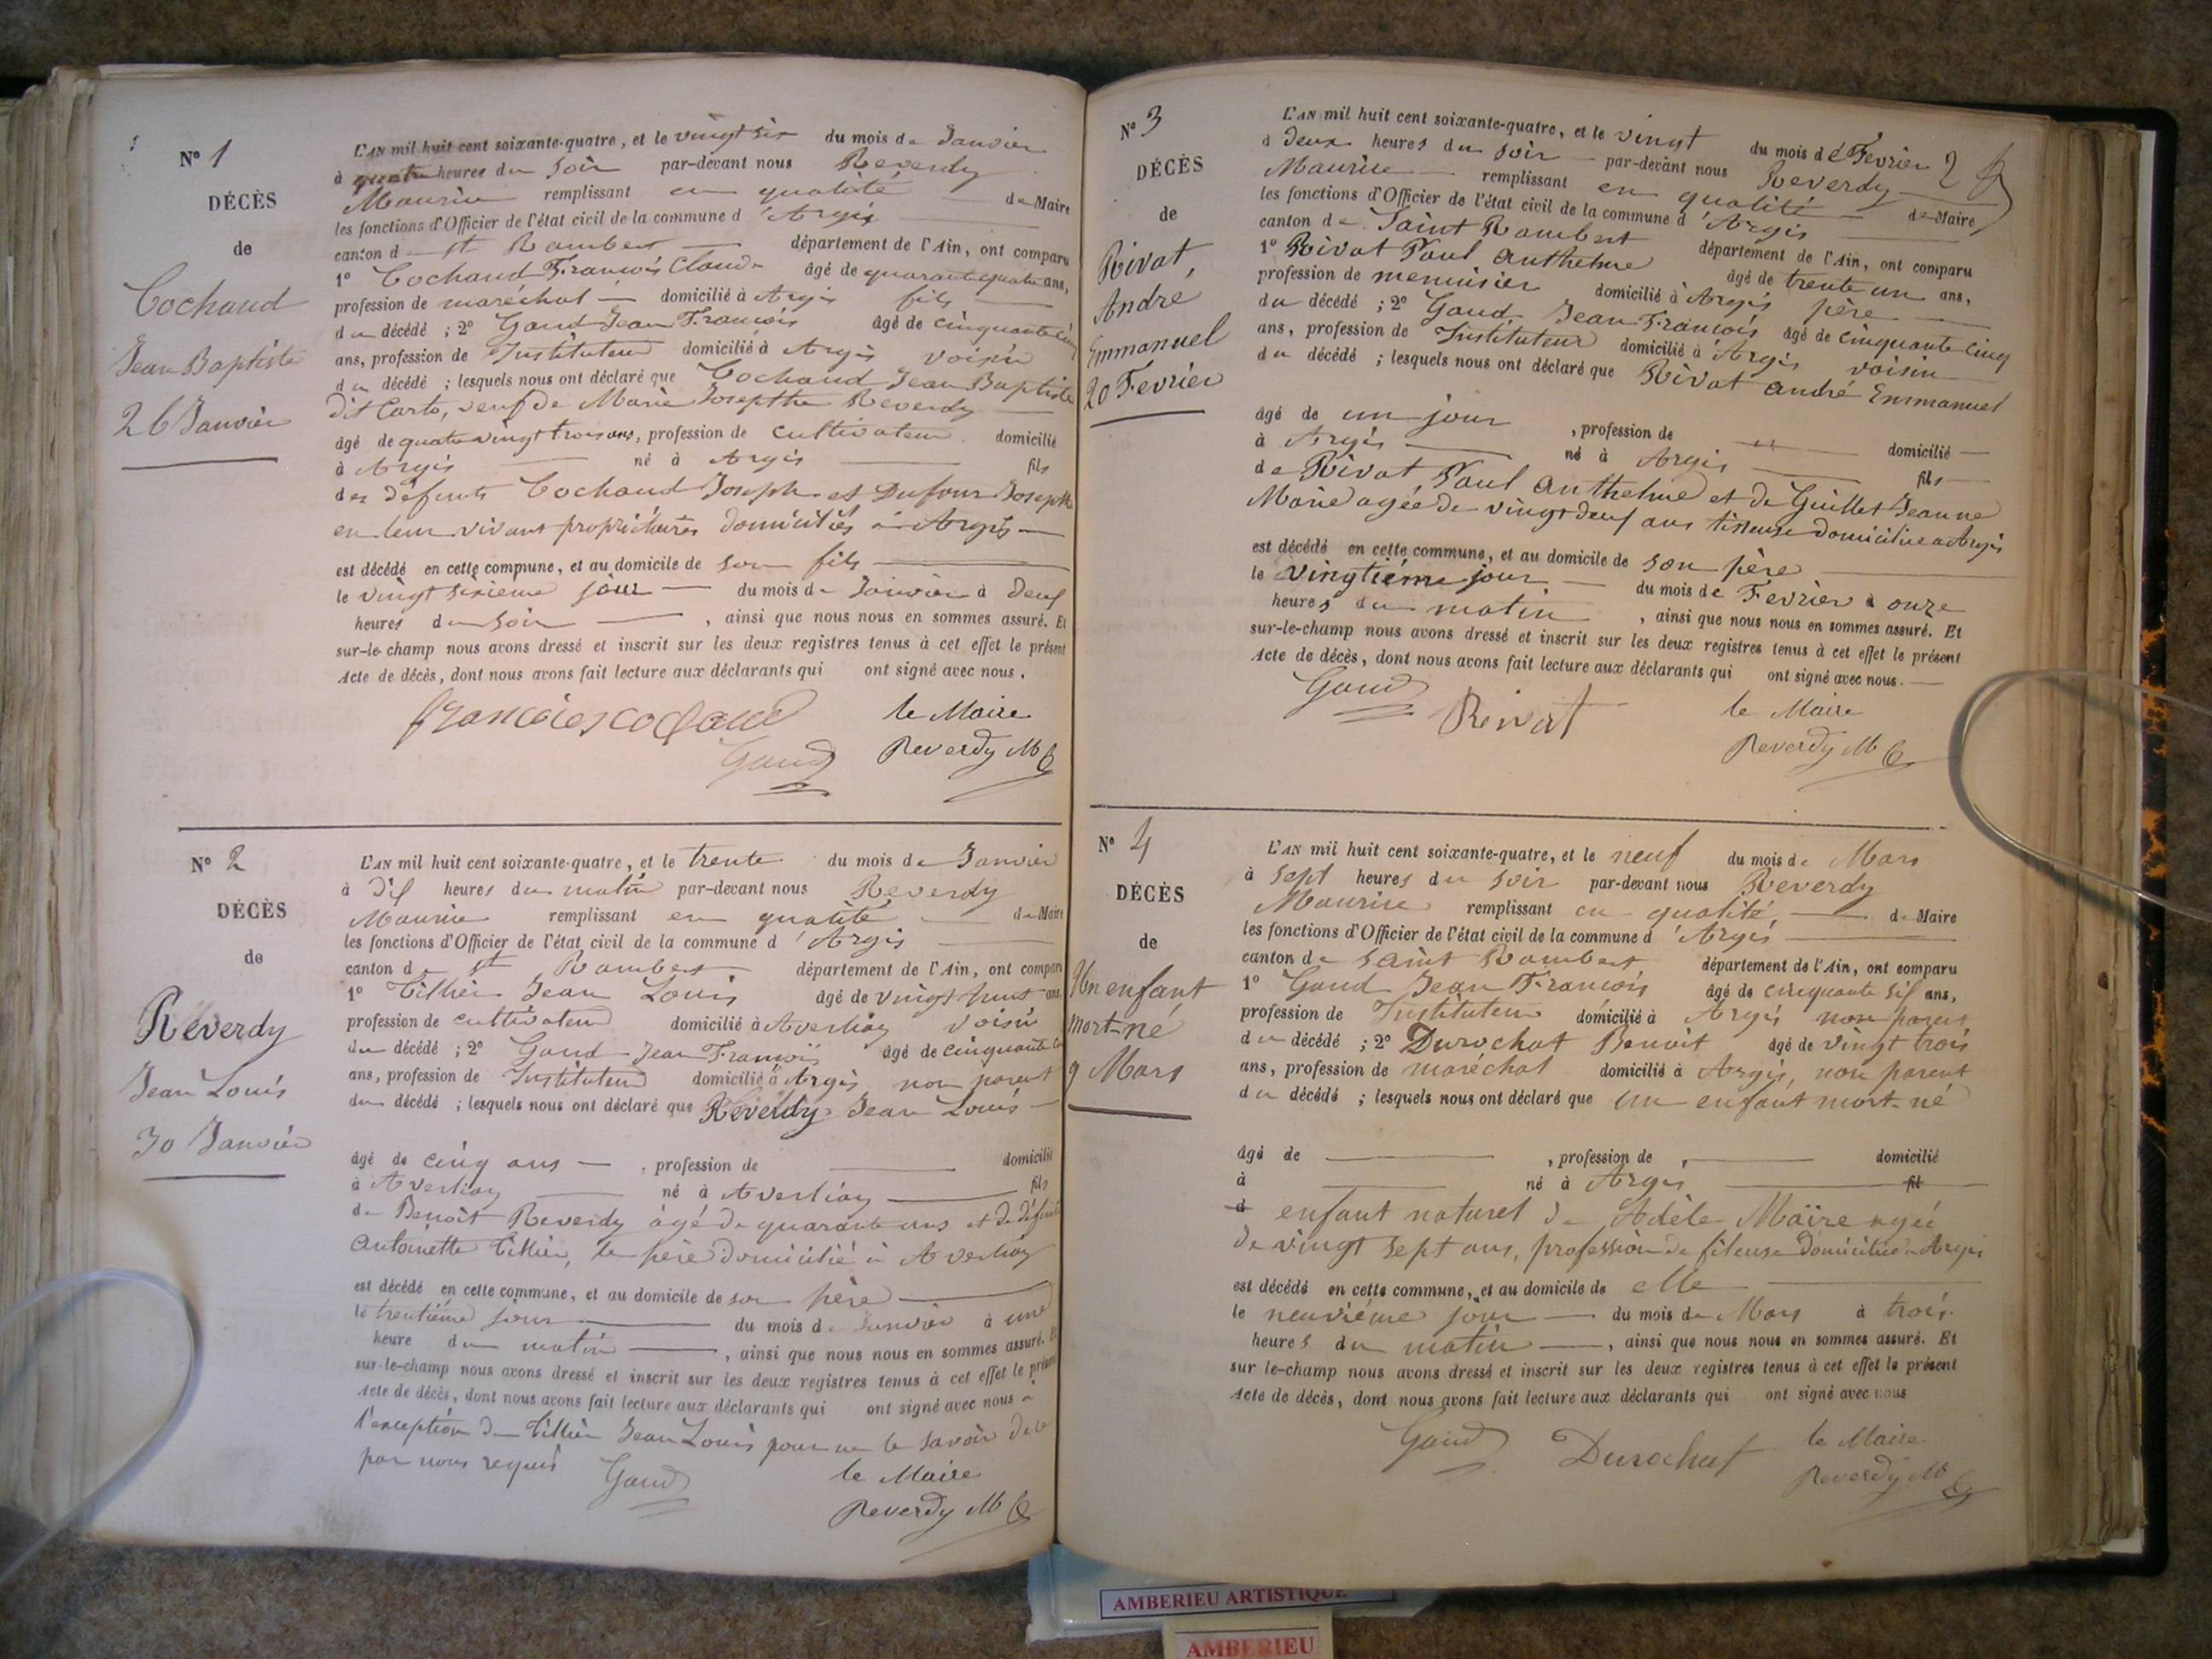 N° 1
DÉCÈS
de
Cochaud
Jean Baptiste
26 Janvier
L'AN mil huit cent soixante-quatre, et le vingt six du mois de Janvier
à quatre heures du soir par-devant nous Reverdy
Maurice remplissant en qualité de Maire
les fonctions d'Officier de l'état civil de la commune d'Argis
canton de St Rambert département de l'Ain, ont comparu
1° Cochaud François Claude âgé de quarante quatre ans,
profession de maréchal domicilié à Argis fils
du décédé ; 2° Gaud Jean François âgé de cinquante cinq
ans, profession de Instituteur domicilié à Argis voisin
du décédé ; lesquels nous ont déclaré que Cochaud Jean Baptiste
dit Carto, veuf de Marie Josepthe Reverdy
âgé de quatre vingt trois ans, profession de cultivateur domicilié
à Argis né à Argis fils
des défunts Cochaud Joseph et Dufour Josepthe
en leur vivant propriétaires domiciliés à Argis
est décédé en cette commune, et au domicile de son fils
le vingt sixième jour du mois de Janvier à deux
heures du soir , ainsi que nous nous en sommes assuré. Et
sur-le-champ nous avons dressé et inscrit sur les deux registres tenus à cet effet le présent
Acte de décès, dont nous avons fait lecture aux déclarants qui ont signé avec nous.
le Maire
Gaud Reverdy M
N° 2
DÉCÈS
de
Reverdy
Jean Louis
30 Janvier
L'AN mil huit cent soixante-quatre, et le trente du mois de Janvier
à dix heures du matin par-devant nous Reverdy
Maurice remplissant en qualité de Maire
les fonctions d'Officier de l'état civil de la commune d'Argis
canton de St Rambert département de l'Ain, ont comparu
1° Tillier Jean Louis âgé de vingt huit ans
profession de cultivateur domicilié à Averliaz voisin
du décédé ; 2° Gaud Jean François âgé de cinquante
ans, profession de Instituteur domicilié à Argis non parent
du décédé ; lesquels nous ont déclaré que Reverdy Jean Louis
âgé de cinq ans , profession de domicilié
à Averliaz né à Averliaz fils
de Benoît Reverdy âgé de quarante ans et de défunte
Antoinette Tillier, le père domicilié à Averliaz
est décédé en cette commune, et au domicile de son père
le trentième jour du mois de Janvier à une
heure du matin , ainsi que nous nous en sommes assuré. Et
sur-le-champ nous avons dressé et inscrit sur les deux registres tenus à cet effet le présent
Acte de décès, dont nous avons fait lecture aux déclarants qui ont signé avec nous à
l'exception de Tillier Jean Louis pour ne le savoir de ce
par nous requis
Gaud le Maire
Reverdy M
N° 3
DÉCÈS
de
Rivat,
André
Emmanuel
20 Fevrier
L'AN mil huit cent soixante-quatre, et le vingt du mois de Fevrier 2
à deux heures du soir par-devant nous Reverdy
Maurice remplissant en qualité de Maire
les fonctions d'Officier de l'état civil de la commune d'Argis
canton de Saint Rambert département de l'Ain, ont comparu
1° Rivat Paul Anthelme âgé de trente un ans,
profession de menuisier domicilié à Argis père
du décédé ; 2° Gaud Jean François âgé de cinquante cinq
ans, profession de Instituteur domicilié à Argis voisin
du décédé ; lesquels nous ont déclaré que Rivat André Emmanuel
âgé de un jour , profession de " domicilié
à Argis né à Argis fils
de Rivat, Paul Anthelme et de Guillet Jeanne
Marie agée de vingt deux ans tisseuse domiciliée à Argis
est décédé en cette commune, et au domicile de son père
le vingtième jour du mois de Fevrier à onze
heures du matin , ainsi que nous nous en sommes assuré. Et
sur-le-champ nous avons dressé et inscrit sur les deux registres tenus à cet effet le présent
Acte de décès, dont nous avons fait lecture aux déclarants qui ont signé avec nous.
Gaud Rivat le Maire
Reverdy M
N° 4
DÉCÈS
de
Un enfant
mort-né
9 Mars
L'AN mil huit cent soixante-quatre, et le neuf du mois de Mars
à sept heures du soir par-devant nous Reverdy
Maurice remplissant en qualité de Maire
les fonctions d'Officier de l'état civil de la commune d'Argis
canton de Saint Rambert département de l'Ain, ont comparu
1° Gaud Jean François âgé de cinquante six ans,
profession de Instituteur domicilié à Argis non parent
du décédé ; 2° Durochat Benoit âgé de vingt trois
ans, profession de maréchal domicilié à Argis, non parent
du décédé ; lesquels nous ont déclaré que un enfant mort-né
âgé de , profession de , domicilié
à né à Argis fil
d enfant naturel de Adèle Maire agée
de vingt sept ans, profession de fileuse domiciliée à Argis
est décédé en cette commune, et au domicile de elle
le neuvième jour du mois de Mars à trois
heures du matin , ainsi que nous nous en sommes assuré. Et
sur le-champ nous avons dressé et inscrit sur les deux registres tenus à cet effet le présent
Acte de décès, dont nous avons fait lecture aux déclarants qui ont signé avec nous
Gaud Durochat le Maire
Reverdy M
AMBERIEU ARTISTIQUE
AMBERIEU